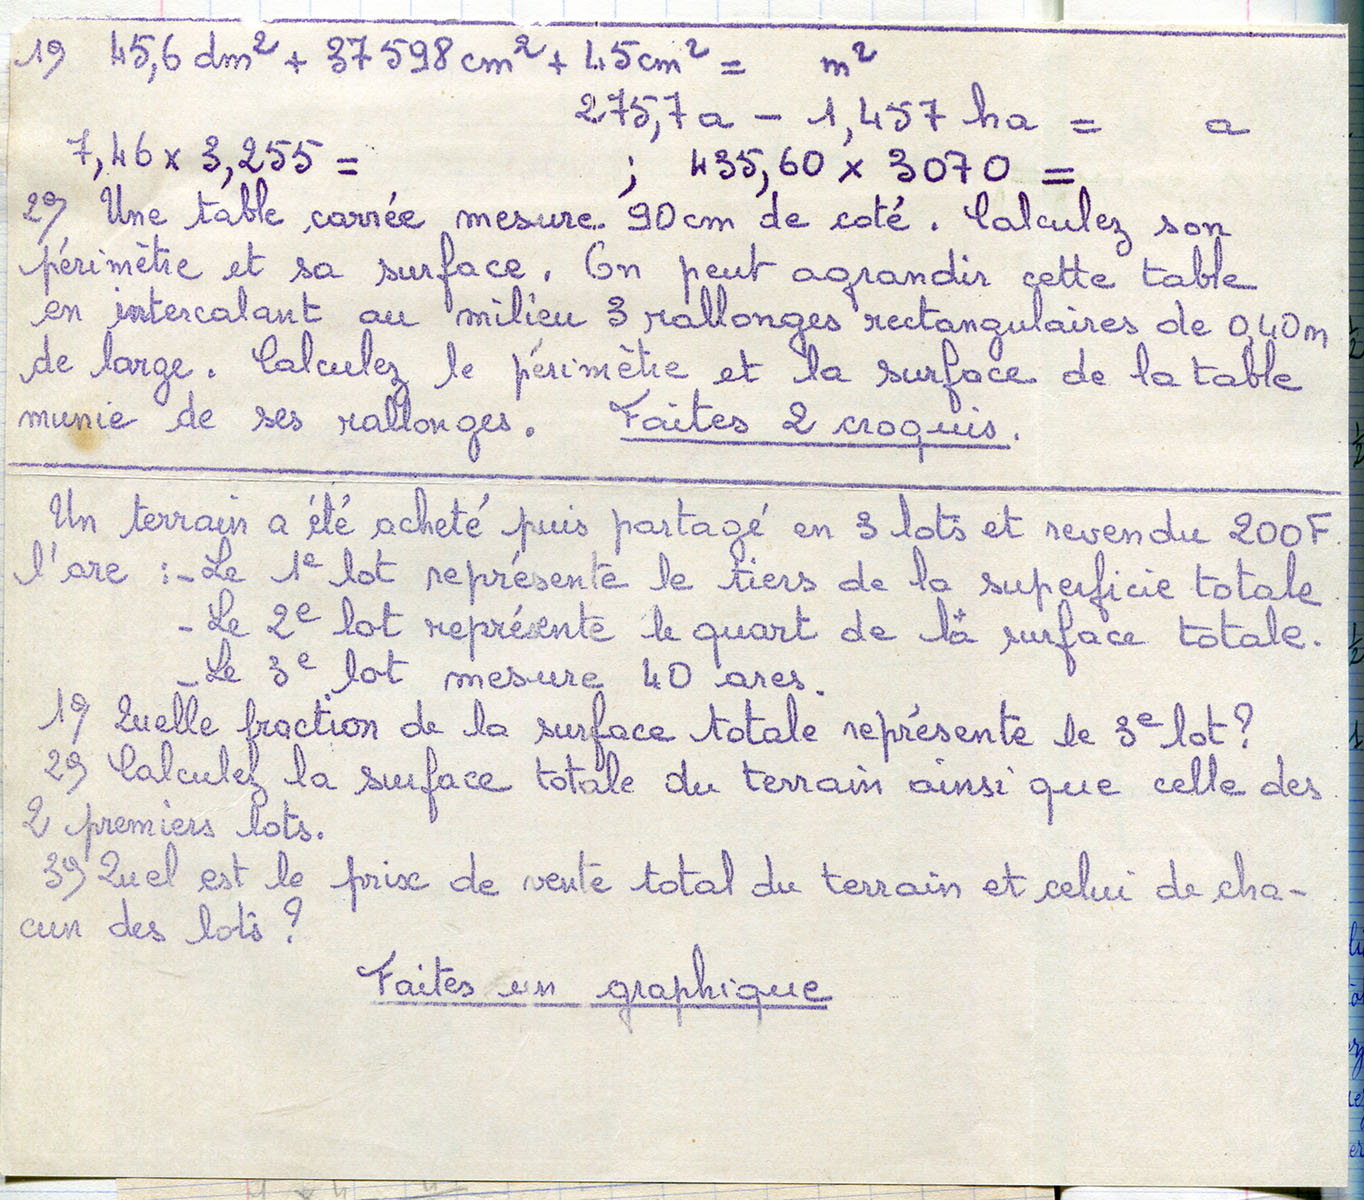 1°) 45,6 dm² + 37598 cm² + 45 cm² = m²
275,7 a - 1,457 ha = a
7,46 x 3,255 = ; 435,60 x 3070 =
2°) Une table carrée mesure 90 cm de coté. Calculez son
périmètre et sa surface. On peut agrandir cette table
en intercalant au milieu 3 rallonges rectangulaires de 0,40 m
de large. Calculez le périmètre et la surface de la table
munie de ses rallonges. Faites 2 croquis.
Un terrain a été acheté puis partagé en 3 lots et revendu 200F
l'are : - Le 1e lot représente le tiers de la superficie totale
- Le 2e lot représente le quart de la surface totale.
- Le 3e lot mesure 40 ares.
1°) Quelle fraction de la surface totale représente le 3e lot ?
2°) Calculez la surface totale du terrain ainsi que celle des
2 premiers lots.
3°) Quel est le prix de vente total du terrain et celui de cha-
cun des lots ?
Faites un graphique